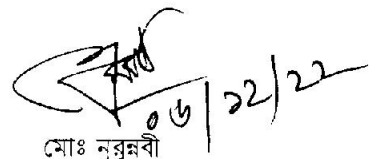 ০৬/১২/২২
মোঃ নূরুন্নবী